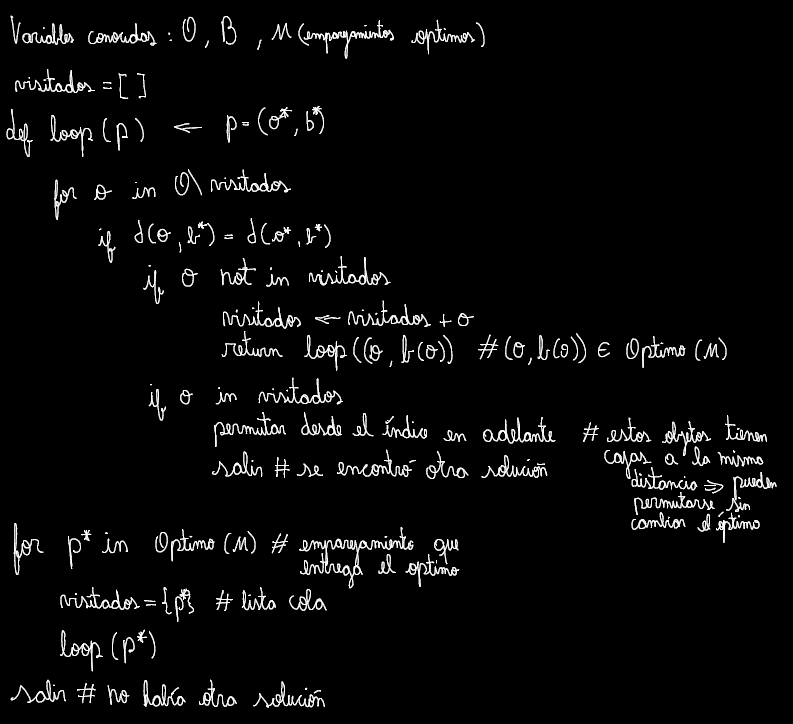 Variables conocidas : O, B , M (emparejamientos optimos)
visitados = [ ]
def loop(p) ← p = (o*, b*)
for o in O\ visitados
if d(o, b*) = d(o*, b*)
if o not in visitados
visitados ← visitados + o
return loop((o, b(o)) # (o, b(o)) ∈ Optimo (M)
if o in visitados
permutar desde el índice en adelante # estos objetos tienen
cajas a la misma
salir # se encontró otra solución
distancia => pueden
permutarse sin
cambiar el óptimo
for p* in Optimo (M) # emparejamiento que
entrega el optimo
visitados = {p*} # lista cola
loop (p*)
salir # no había otra solución